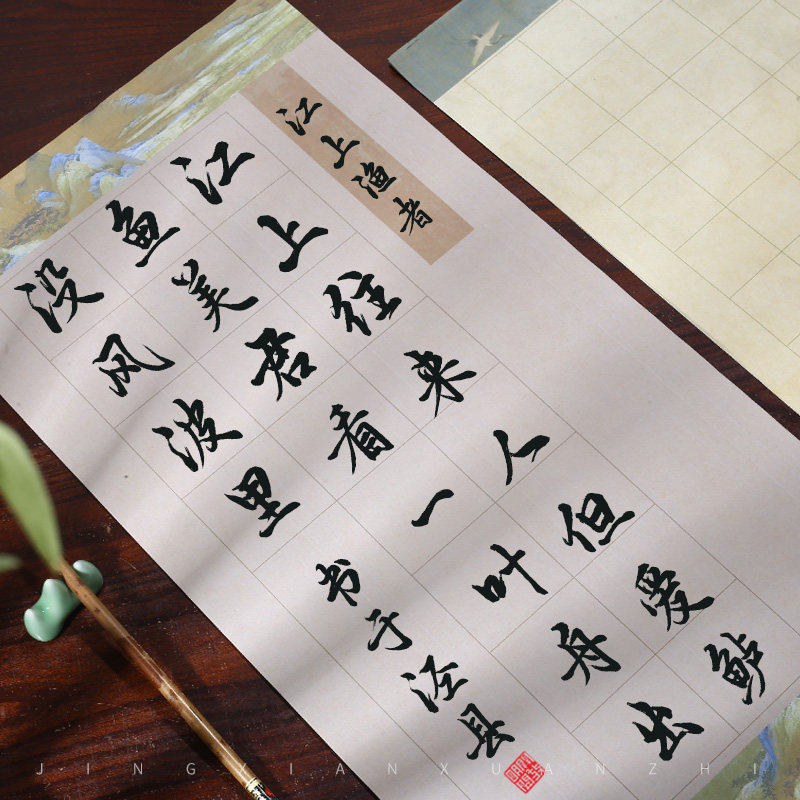 江上渔者
江上往来人但爱鲈
鱼美君看一叶舟出
没风波里
书于泾县
JINGXIANXUANZHI